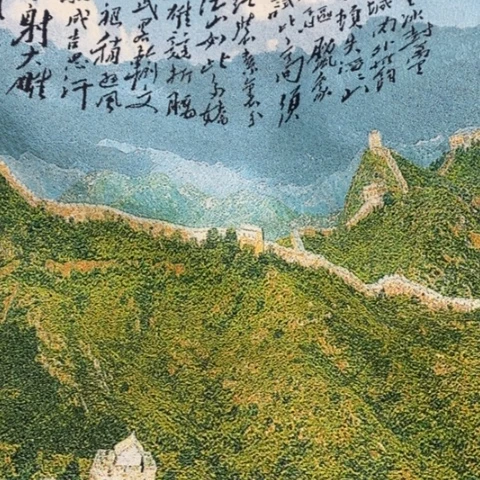 冰封
城内外惟餘
頓失滔滔山
驅蠟象
試比高須
裝素裹分
江山如此多嬌
雄競折腰
武略輸文
祖稍遜風
成吉思汗
射大雕